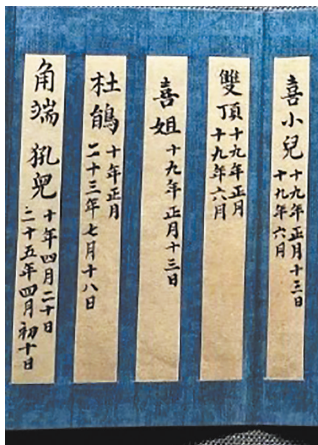 喜小兒 十九年正月十三日
十九年六月
雙頂 十九年正月
十九年六月
喜姐 十九年正月十三日
杜鵑 十年正月
二十三年七月十八日
角端 犼兒 十年四月二十日
二十五年四月初十日